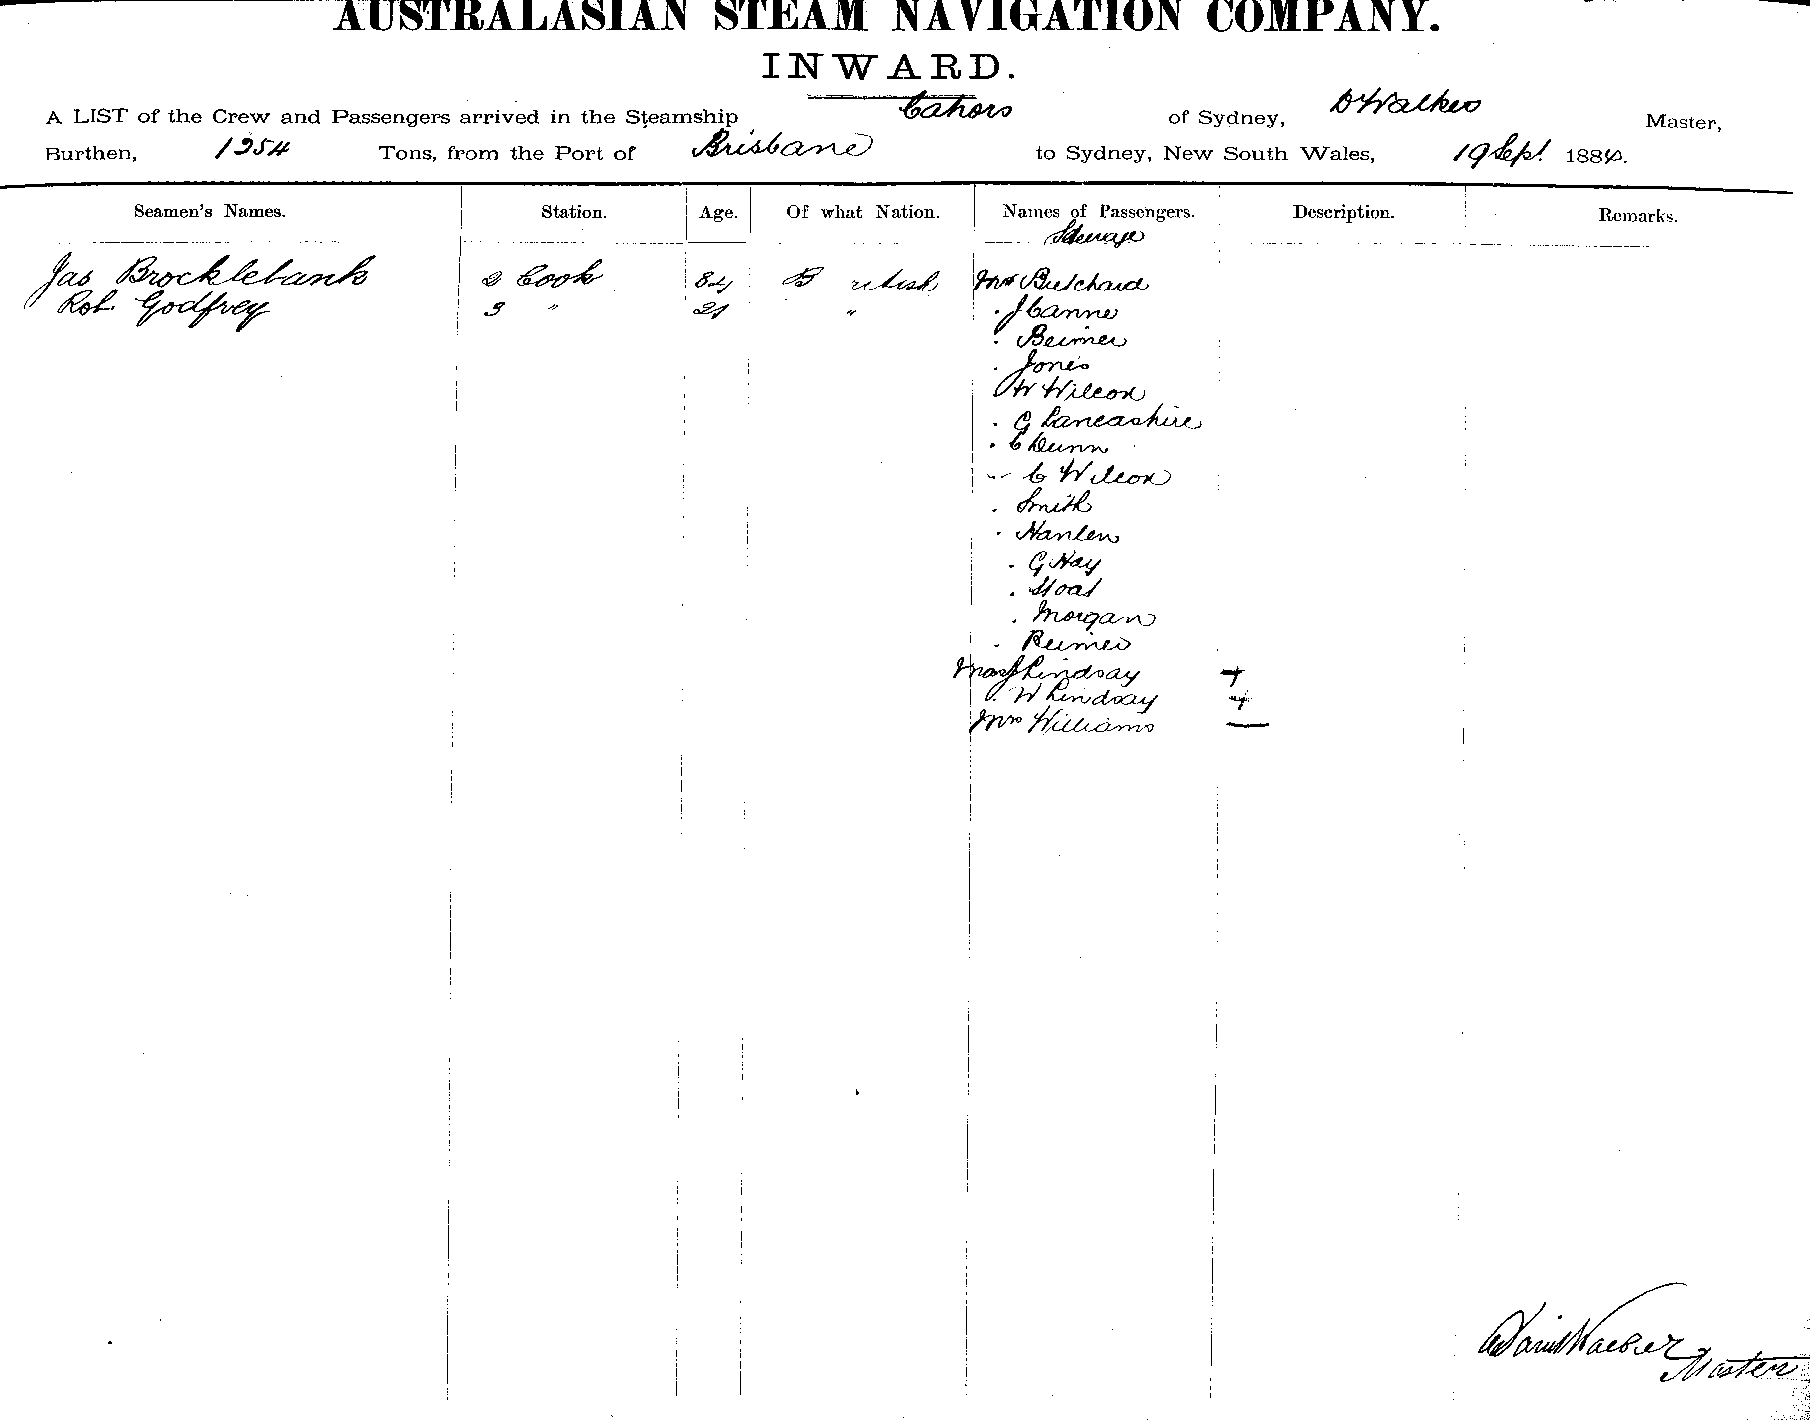 AUSTRALASIAN STEAM NAVIGATION COMPANY.
INWARD.
A LIST of the Crew and Passengers arrived in the Steamship Cahors of Sydney, D Walker Master,
Burthen, 1254 Tons, from the Port of Brisbane to Sydney, New South Wales, 19 Sept. 1884.
Seamen's Names. Station. Age. Of what Nation. Names of Passengers. Description. Remarks.
Steerage
Jas Brocklebank 2 Cook 34 British Mrs Butchard
Rob. Godfrey 3 " 21 " . J Canne
. Beimer
. Jones
W Wilcox
. G Lancashire
. C Dunn
" C Wilcox
. Smith
. Hanlen
. G Hay
. Sloat
. Morgan
. Reimer
Mas J Lindsay +
. W Lindsay +
Mrs Williams —
Daniel Walker
Master